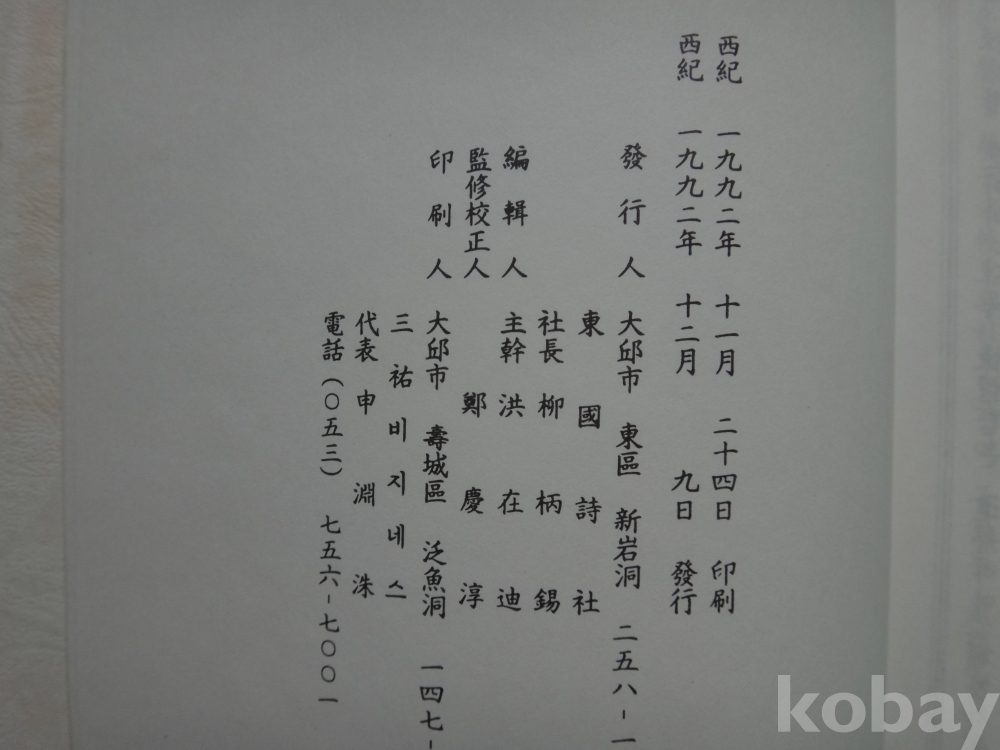 西紀 一九九二年 十一月 二十四日 印刷
西紀 一九九二年 十二月 九日 發行
發行人 大邱市 東區 新岩洞 二五八-一
東國詩社
社長 柳柄錫
編輯人 主幹 洪在迪
監修校正人 鄭慶淳
印刷人 大邱市 壽城區 泛魚洞 一四七-
三祐비지네스
代表 申淵洙
電話(○五三) 七五六-七○○一
kobay